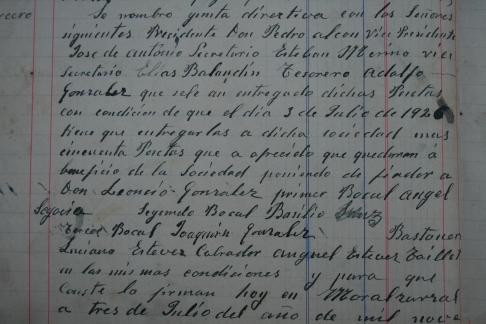 Se nombro junta directiva con los Señores
siguientes Presidente Don Pedro alcon Vice Presidente
Jose de Antonio Secretario Esteban Merino vice
Secretario Elias Balandin Tesorero Adolfo
Gonzalez que se le an entregado dichas Pesetas
con condicion de que el dia 3 de Julio de 1926
tiene que entregarlas a dicha sociedad mas
cincuenta Pesetas que a ofrecido que quedaran á
beneficio de la Sociedad poniendo de fiador a
Don Leoncio Gonzalez primer Bocal angel
Segovia Segundo Bocal Basilio
Tercer Bocal Joaquin Gonzalez Bastonero
Luciano Estevez Cobrador angel Estevez
en las mismas condiciones y para que
Conste lo firman hoy en Moralzarzal
a tres de Julio del año de mil nove